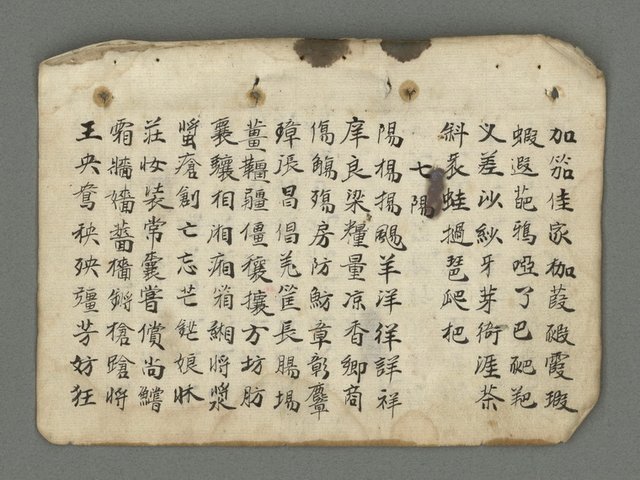 加笳佳家枷葭碬霞瑕
蝦遐葩鴉啞了巴砶羓
义差沙紗牙芽衙涯茶
斜衺蛙撾琶爬杷
七陽
陽楊揚颺羊洋徉詳祥
庠良梁糧量凉香鄉商
傷觴殤房防魴章彰麞
璋張昌倡羌筐長腸場
薑韁疆僵穰攘方坊肪
襄驤相湘廂箱緗將漿
螿瘡創亡忘芒鋩娘牀
莊妝裝常囊嘗償尚鱨
霜牆嬙薔檣鏘槍蹌將
王央鴦秧殃彊芳妨狂